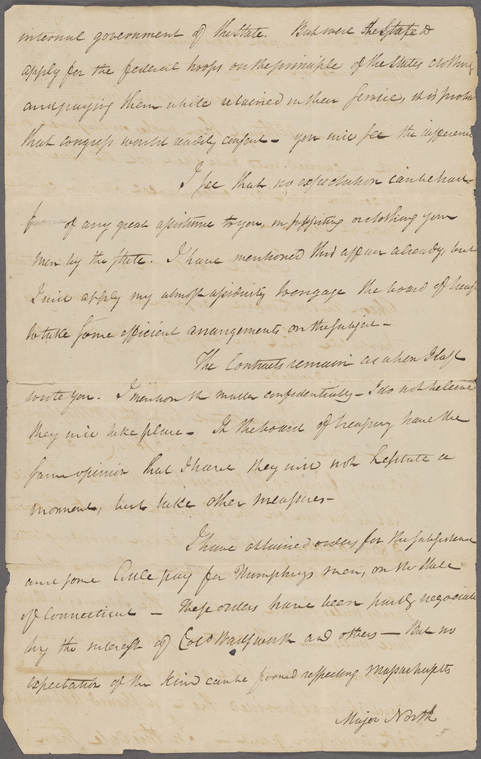 internal government of the State. But were the State to
apply for the federal troops on the principle of the States clothing
and paying them while retained in their service, it is probable
that congress would easily consent — you will see the difference
I see that no expectation can be had
of any great assistance to you, in subsisting or clothing your
men by the state. I have mentioned this affair already, but
I will apply my utmost assiduity to engage the board of treasy
to take some efficient arrangements on the subject —
The Contracts remain as when I last
wrote you. I mention the matter confidentially — I do not believe
they will take place — If the board of treasury have the
same opinion that I have they will not hesitate a
moment, but take other measures —
I have obtained orders for the subsistence
and some little pay for Humphrys men, on the State
of Connecticut — These orders have been partly negociated
by the interest of Colo Wadsworth and others — But no
expectation of the kind can be formed respecting Massachusetts
Major North